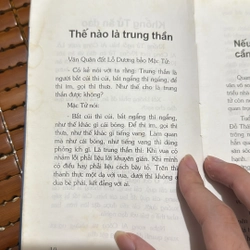 Thế nào là trung thần
Văn Quân đất Lỗ Dương bảo Mặc Tử:
- Có kẻ nói với ta rằng: Trung thần là
người bắt cúi thì cúi, bắt ngẩng thì ngẩng, để
thì im, gọi thì thưa. Như thế cho là trung
thần được không?
Mặc Tử nói:
- Bắt cúi thì cúi, bắt ngẩng thì ngẩng, như
thế khác gì cái bóng. Để thì im, gọi thì
thưa, như thế khác gì tiếng vang. Làm quan
mà như cái bóng, như tiếng vang thì dùng
phỏng ích gì. Là trung thần thì: Khi vua có
nhầm lỗi phải liệu lời khuyên gián. Khi mình
có điều hay phải liệu cách bày tỏ. Trên thì
thành thực một dạ với vua, dưới thì không a
dua bè phái, kết đảng với ai.
Nếu
cần